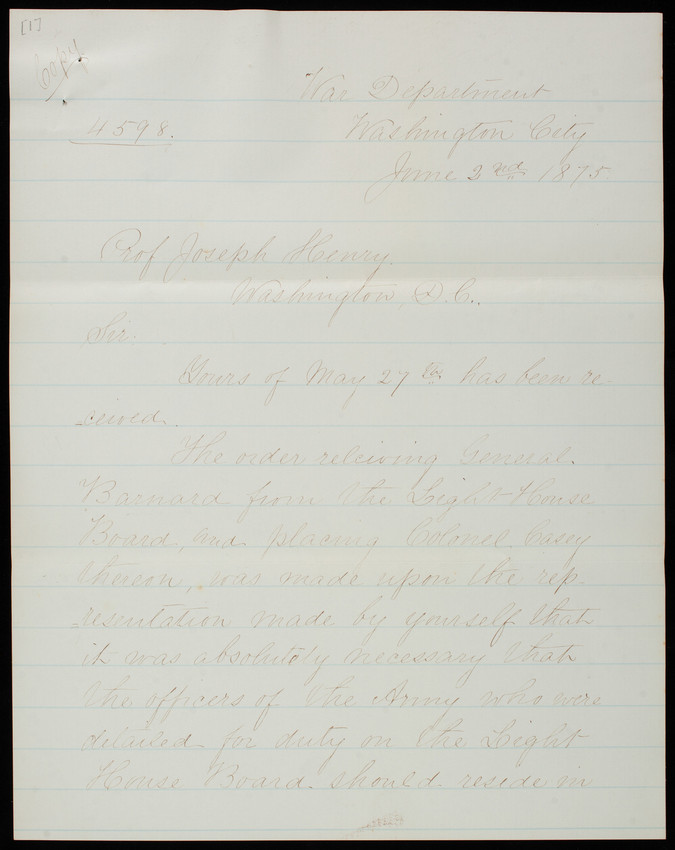 [1]
Copy
War Department
4598. Washington City
June 2nd 1875.
Prof Joseph Henry.
Washington, D.C..
Sir.
Yours of May 27th has been re-
=ceived.
The order releiving General
Barnard from the Light-House
Board, and placing Colonel Casey
thereon, was made upon the rep-
=resentation made by yourself that
it was absolutely necessary that
the officers of the Army who were
detailed for duty on the Light
House Board should reside in